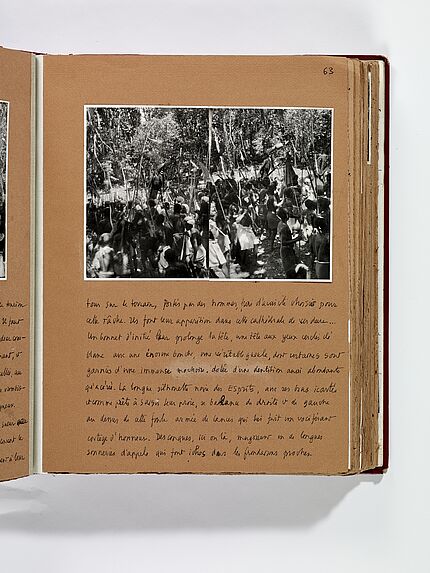 63
tous sur le terrain, portés par des hommes, choisis pour
cette tâche. Ils font leur apparition dans cette cathédrale de verdure...
Un bonnet d'initié leur prolonge la tête, une tête aux yeux cerclés de
blanc avec une énorme bouche, une véritable gueule, dont certaines sont
garnies d'une immense machoire, dotée d'une dentition aussi abondante
qu'acérée. La longue silhouette noire des Esprits, avec ses bras écartés
comme prête à saisir leur proie, se balance de droite et de gauche
au dessus de cette forêt armée de lances qui lui fait un vociférant
cortège d'honneur. Des conques, ici ou là, mugissent en de longues
sonneries d'appels qui font échos dans les frondaisons proches